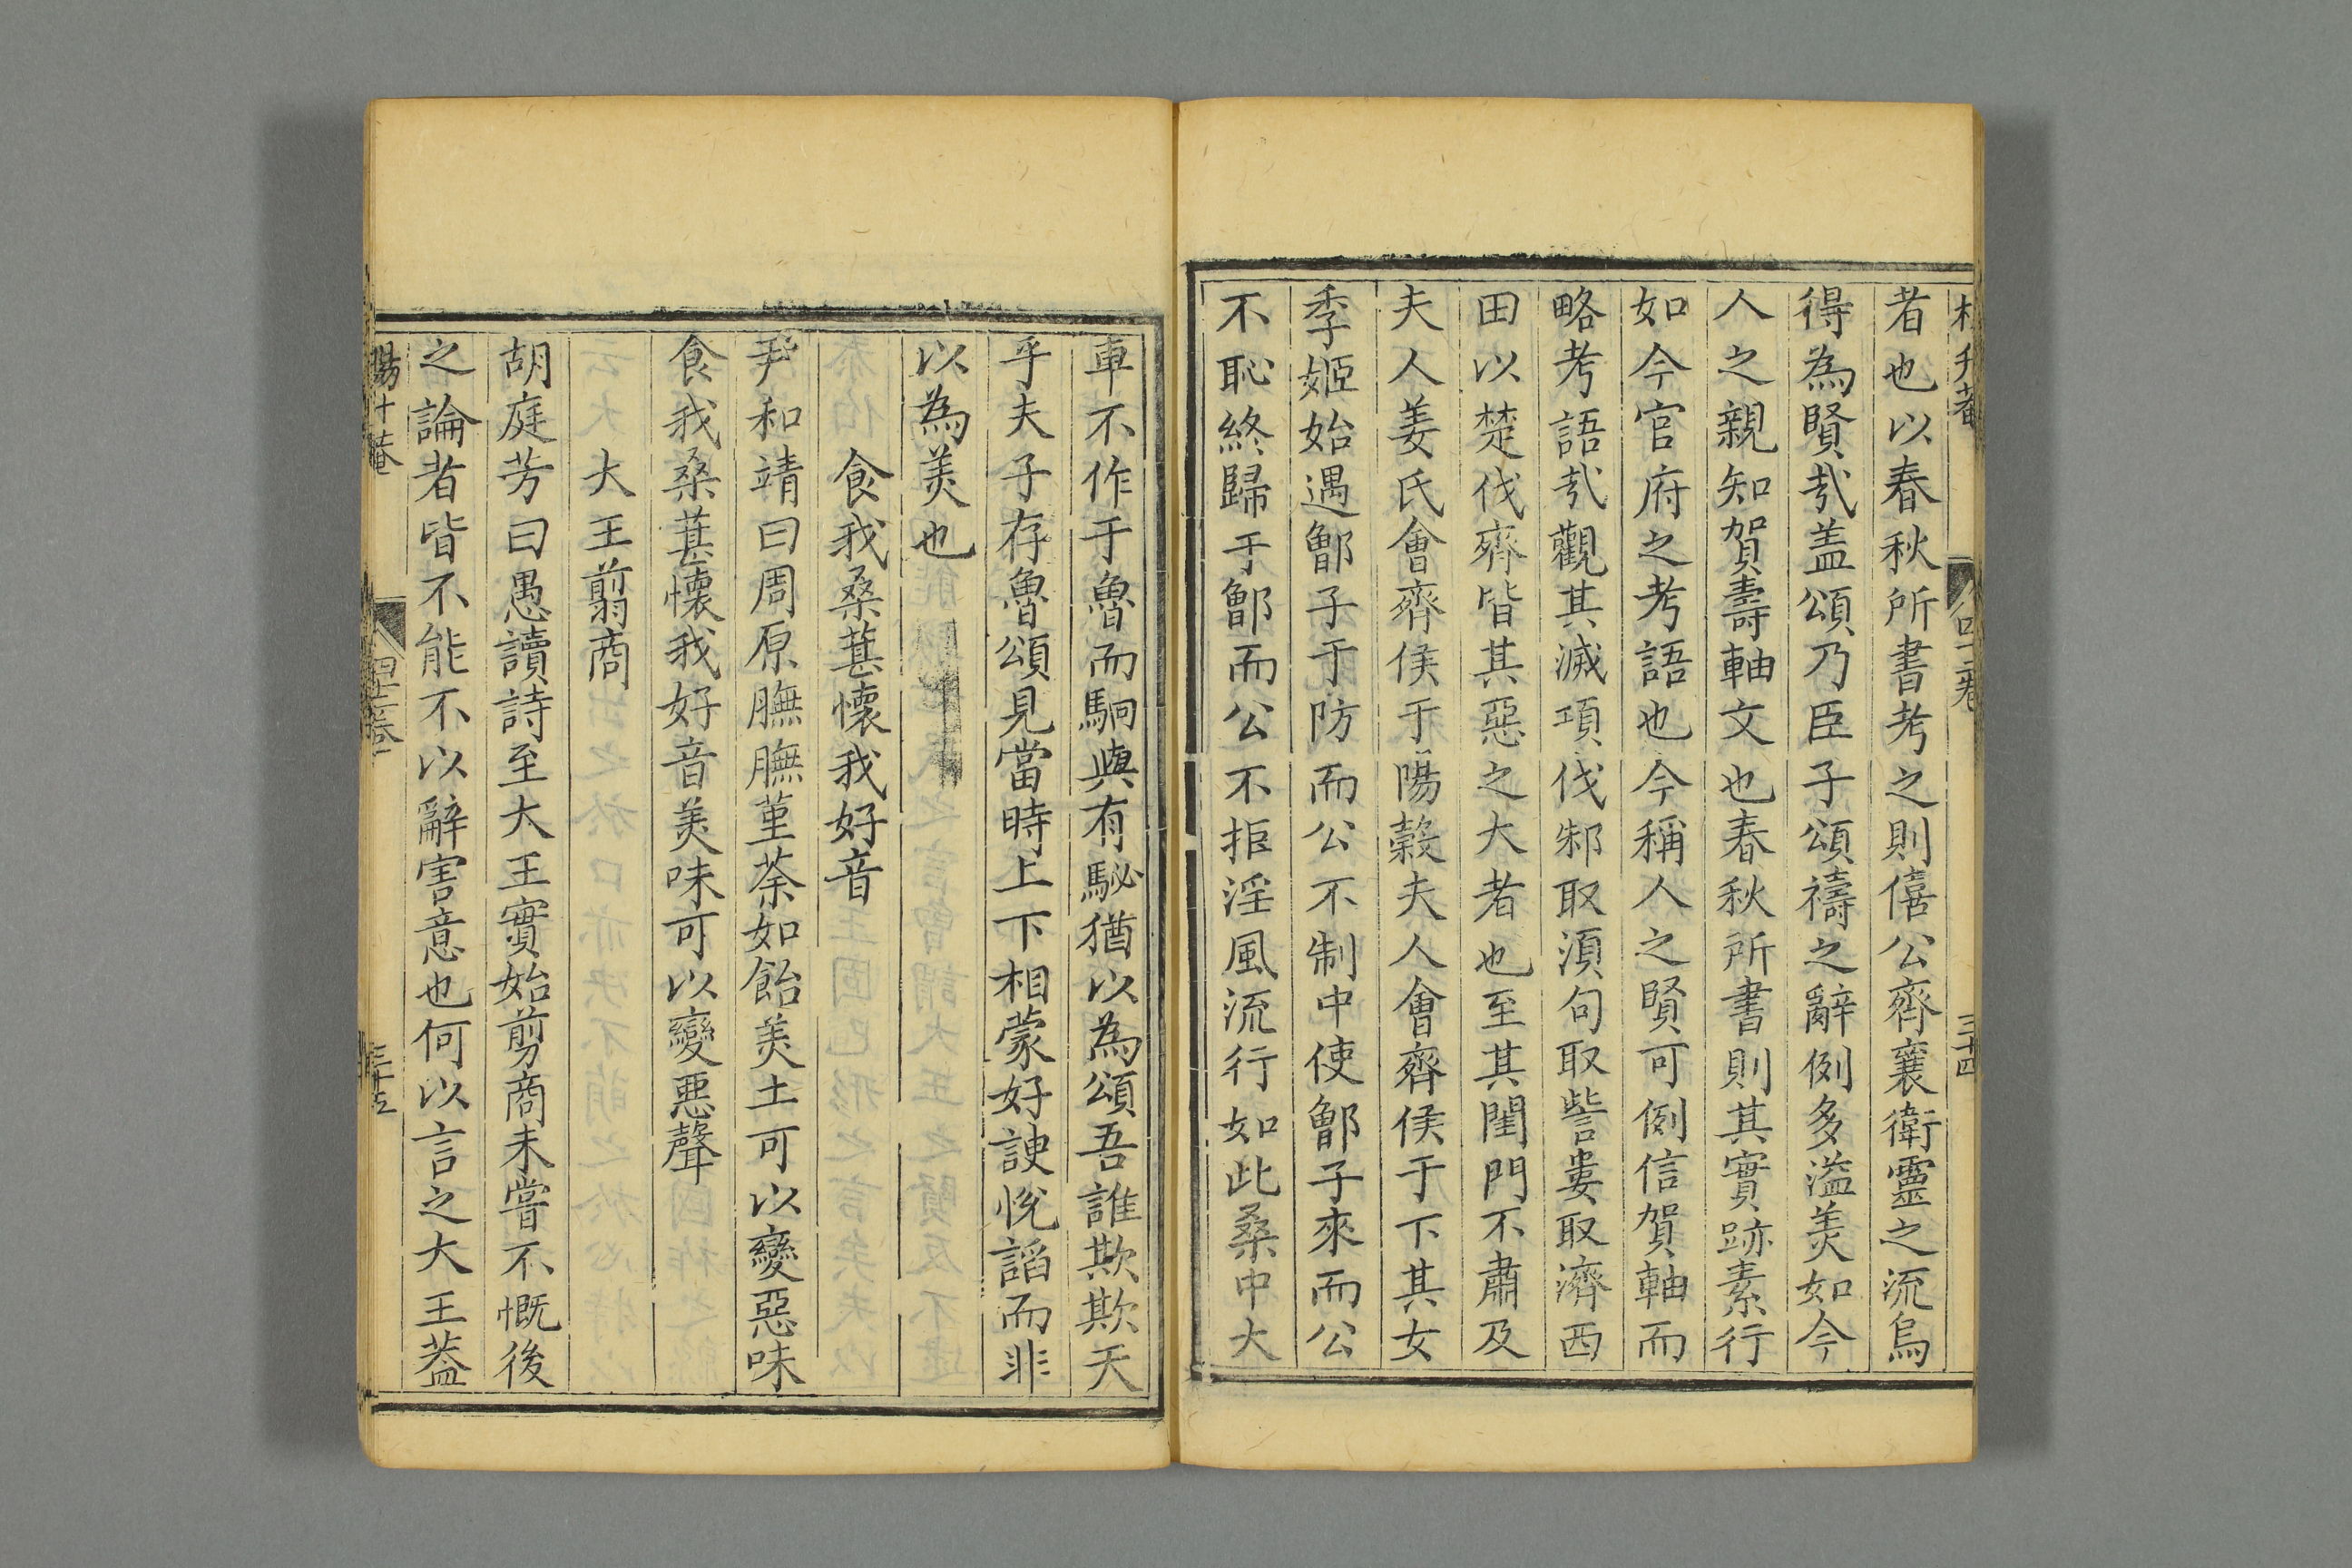 者也以春秋所書考之則僖公齊襄衛靈之流烏
得為賢㢤盖頌乃臣子頌禱之辭例多溢羙如今
人之親知賀壽軸文也春秋所書則其實跡素行
如今官府之考語也今稱人之賢可例信賀軸而
略考語㢤觀其滅項伐邾取湏句取訾婁取濟西
田以楚伐齊皆其惡之大者也至其閨門不肅及
夫人姜氏會齊侯于陽糓夫人會齊侯于下其女
季姬始遇鄫子于防而公不制中使鄫子來而公
不恥終歸于鄫而公不拒淫風流行如此桑中大
車不作于魯而駉與有駜猶以為頌吾誰欺欺天
乎夫子存魯頌見當時上下相蒙好諛悅謟而非
以為羙也
食我桑葚懷我好音
尹和靖曰周原膴膴堇荼如飴羙土可以變惡味
食我桑葚懷我好音羙味可以變惡聲
大王翦商
胡庭芳曰愚讀詩至大王實始剪商未嘗不慨後
之論者皆不能不以辭害意也何以言之大王葢
三十五